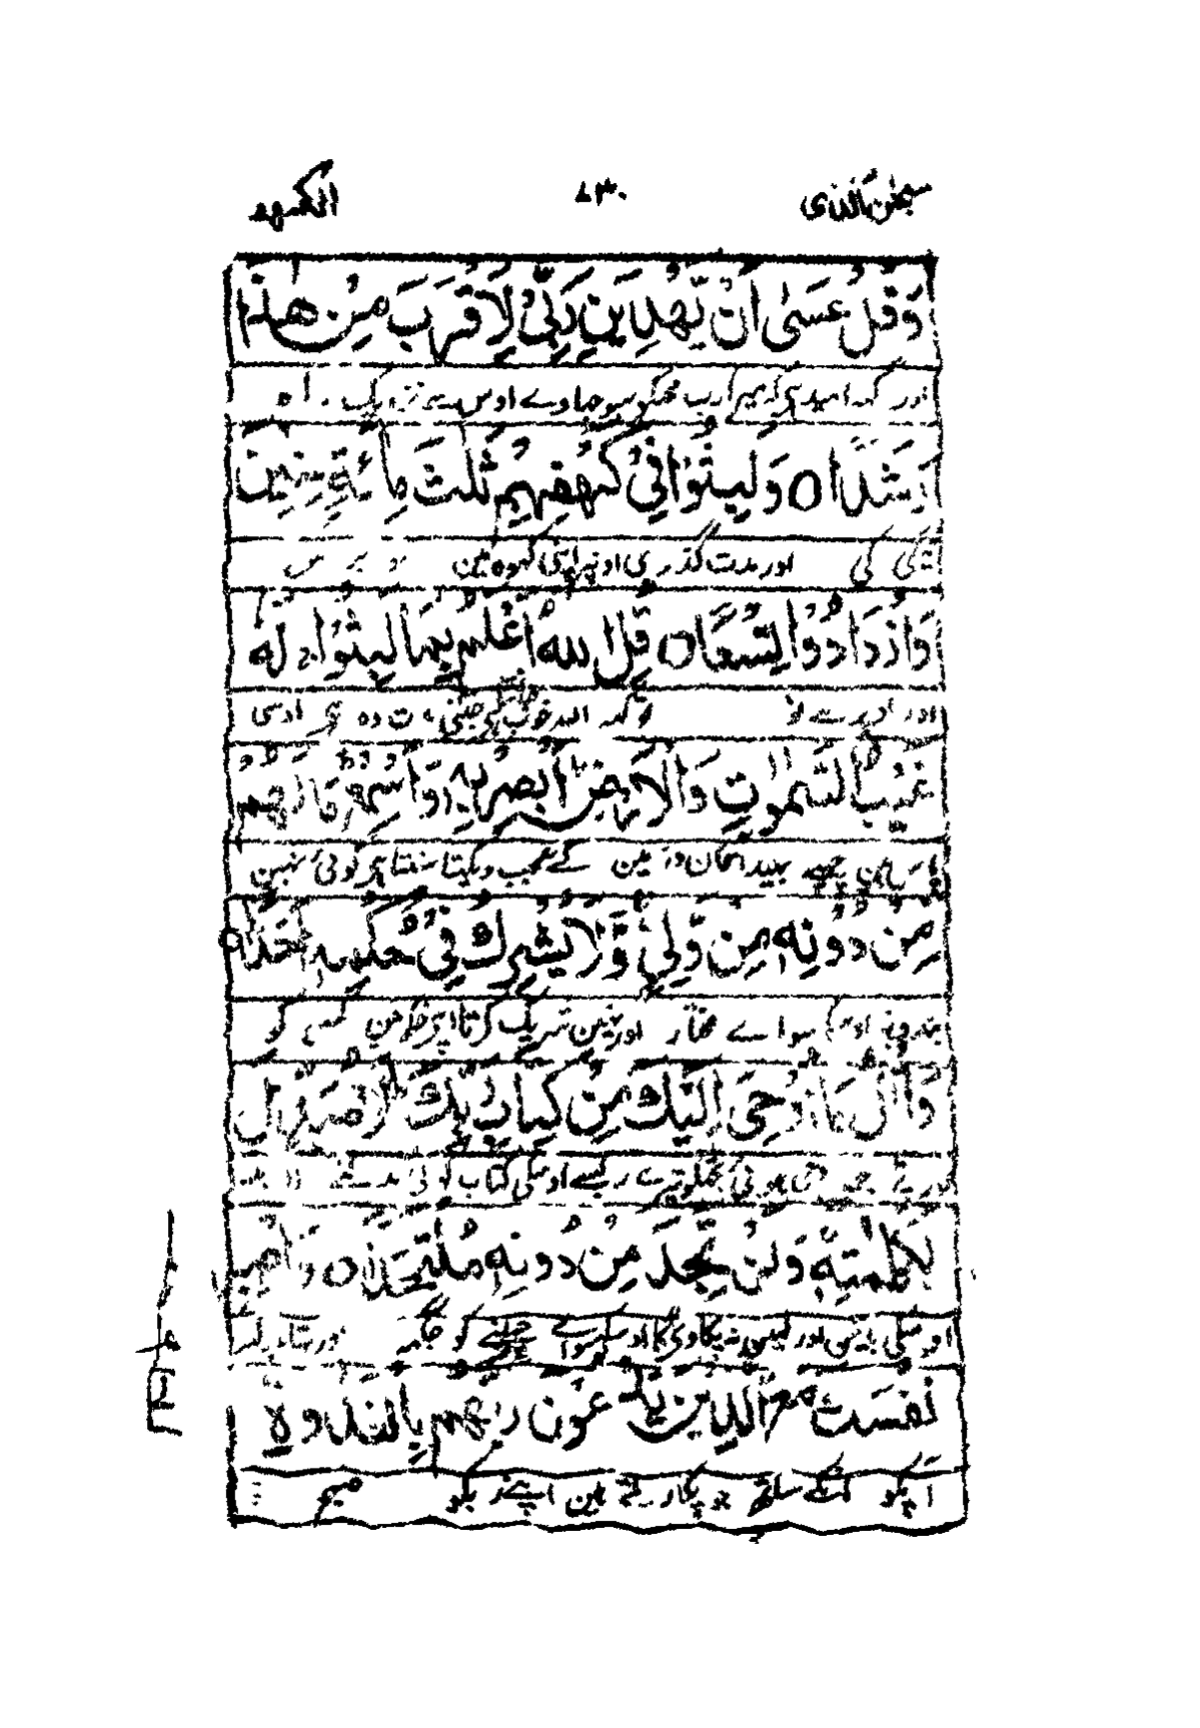 سبحٰن الذی ۷۳۰ الکهف
وَقُلْ عَسٰى اَنْ يَّهْدِيَنِ رَبِّىْ لِاَقْرَبَ مِنْ هٰذَا
اور کہہ امید ہی کہ میرا رب مجھکو سوجھاوے اوس سے نزدیک راہ
رَشَدًا ٥ وَلَبِثُوْا فِىْ كَهْفِهِمْ ثَلٰثَ مِائَةٍ سِنِيْنَ
نیکی کی اور مدت گذری اونپر اپنی کھوہ مین
وَازْدَادُوْا تِسْعًا ٥ قُلِ اللّٰهُ اَعْلَمُ بِمَا لَبِثُوْا ج لَهٗ
اور اوپر سے نو تو کہہ اللہ خوب جانے جتنی مدت وہ رہی اوسی
غَيْبُ السَّمٰوٰتِ وَالْاَرْضِ اَبْصِرْ بِهٖ وَاَسْمِعْ مَا لَهُمْ
پاس ہین چھپے بھید آسمان و زمین کے عجب دیکھتا سنتا ہی کوئی نہین
مِنْ دُوْنِهٖ مِنْ وَّلِىٍّ وَّلَا يُشْرِكُ فِىْ حُكْمِهٖ اَحَدًا ٥
بندونپر اوسکے سواے مختار اور نہین شریک کرتا اپنے حکم مین کسی کو
وَاتْلُ مَا اُوْحِىَ اِلَيْكَ مِنْ كِتَابِ رَبِّكَ لَا مُبَدِّلَ
اور پڑھ جو وحی ہوئی تجھکو تیرے رب کی اوسکی کتاب کوئی بدلنے والا نہین
لِكَلِمٰتِهٖ وَلَنْ تَجِدَ مِنْ دُوْنِهٖ مُلْتَحَدًا ٥ وَاصْبِرْ
اوسکی باتین اور کہین نہ پاویگا تو اوسکے سواے چھپنے کو جگہ اور تھام رکھ
نَفْسَكَ مَعَ الَّذِيْنَ يَدْعُوْنَ رَبَّهُمْ بِالْغَدٰوةِ
آپکو اونکے ساتھ جو پکارتے ہین اپنے رب کو صبح